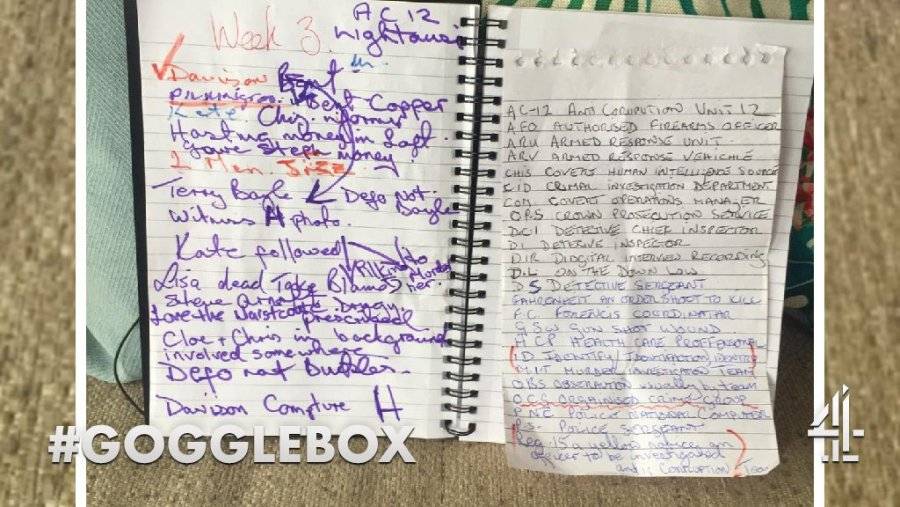 Week 3.
AC 12
Davison Bent
Bent Copper
Kate Chis informer
money in Loft
Gave Steph money
2 Men.
Terry Boyle Defo Not
Boyle
Witness H photo.
Kate followed
Lisa dead Take Blame
Steve
Love the Waistcoats
Cloe + Chris in background
involved somewhere
Defo not
Davison Compture H
AC-12 ANTI CORUPTION UNIT 12
AFO AUTHORISED FIREARMS OFFICER
ARU ARMED RESPONSE UNIT.
ARV ARMED RESPONSE VEHICHLE
CHIS COVERT HUMAN INTELLIGENCE SOURCE
CID CRIMAL INVESTIGATION DEPARTMENT
COM COVERT OPERATIONS MANAGER
CROWN PROSECUTION SERVICE
DCI DETECTIVE CHIEF INSPECTOR
DI DETECTIVE INSPECTOR
DIR DIDGITAL INTERVIEW RECORDING
D.L ON THE DOWN LOW
DS DETECTIVE SERGEANT
FAHRENHEIT AN ORDER SHOOT TO KILL
F.C FORENCIS COORDINATAR
G.S.W GUN SHOT WOUND.
HCP HEALTH CARE PROFFENSONAL
ID IDENTIFY
MIT MURDER INVESTIGATION TEAM
OBS OBSERVATION usually by team
OCG ORGANISED CRIME GROUP
PNC POLICE NATIONAL COMPUTER
PS- POLICE SERGEANT
Reg 15 a yellow notice an
officer to be investigated
anti CORRUPTION
#GOGGLEBOX
4